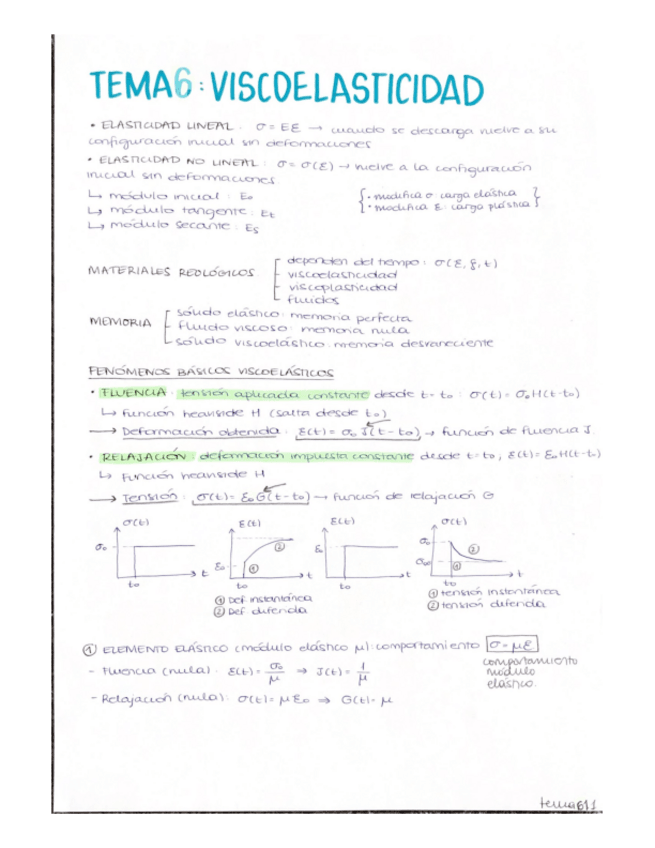 TEMA 6: VISCOELASTICIDAD
• ELASTICIDAD LINEAL: σ = Eε → cuando se descarga vuelve a su
configuración inicial sin deformaciones
• ELASTICIDAD NO LINEAL: σ = σ(ε) → vuelve a la configuración
inicial sin deformaciones
↳ módulo inicial: E₀
↳ módulo tangente: Et
↳ módulo secante: Es
{ • modifica σ carga elástica
• modifica ε carga plástica }
MATERIALES REOLÓGICOS
dependen del tiempo: σ(ε, ε̇, t)
viscoelasticidad
viscoplasticidad
fluidos
MEMORIA
sólido elástico: memoria perfecta
fluido viscoso: memoria nula
sólido viscoelástico: memoria desvaneciente
FENÓMENOS BÁSICOS VISCOELÁSTICOS
• FLUENCIA: tensión aplicada constante desde t = t₀: σ(t) = σ₀H(t-t₀)
↳ Función heaviside H (salta desde t₀)
→ Deformación obtenida: ε(t) = σ₀ J(t-t₀) → función de fluencia J.
• RELAJACIÓN: deformación impuesta constante desde t=t₀, ε(t) = ε₀H(t-t₀)
↳ Función heaviside H
→ Tensión: σ(t) = ε₀G(t-t₀) → función de relajación G
σ(t) σ₀ t₀ t
ε(t) ε₀ ① ② t₀ t
ε(t) ε₀ t₀ t
σ(t) σ₀ σ∞ ① ② t₀ t
① Def instantánea
② Def diferida
① tensión instantánea
② tensión diferida
① ELEMENTO ELÁSTICO (módulo elástico μ): comportamiento σ = με
comportamiento
módulo
elástico.
- Fluencia (nula): ε(t) = σ₀/μ ⇒ J(t) = 1/μ
- Relajación (nula): σ(t) = με₀ ⇒ G(t) = μ
tema 6 | 1